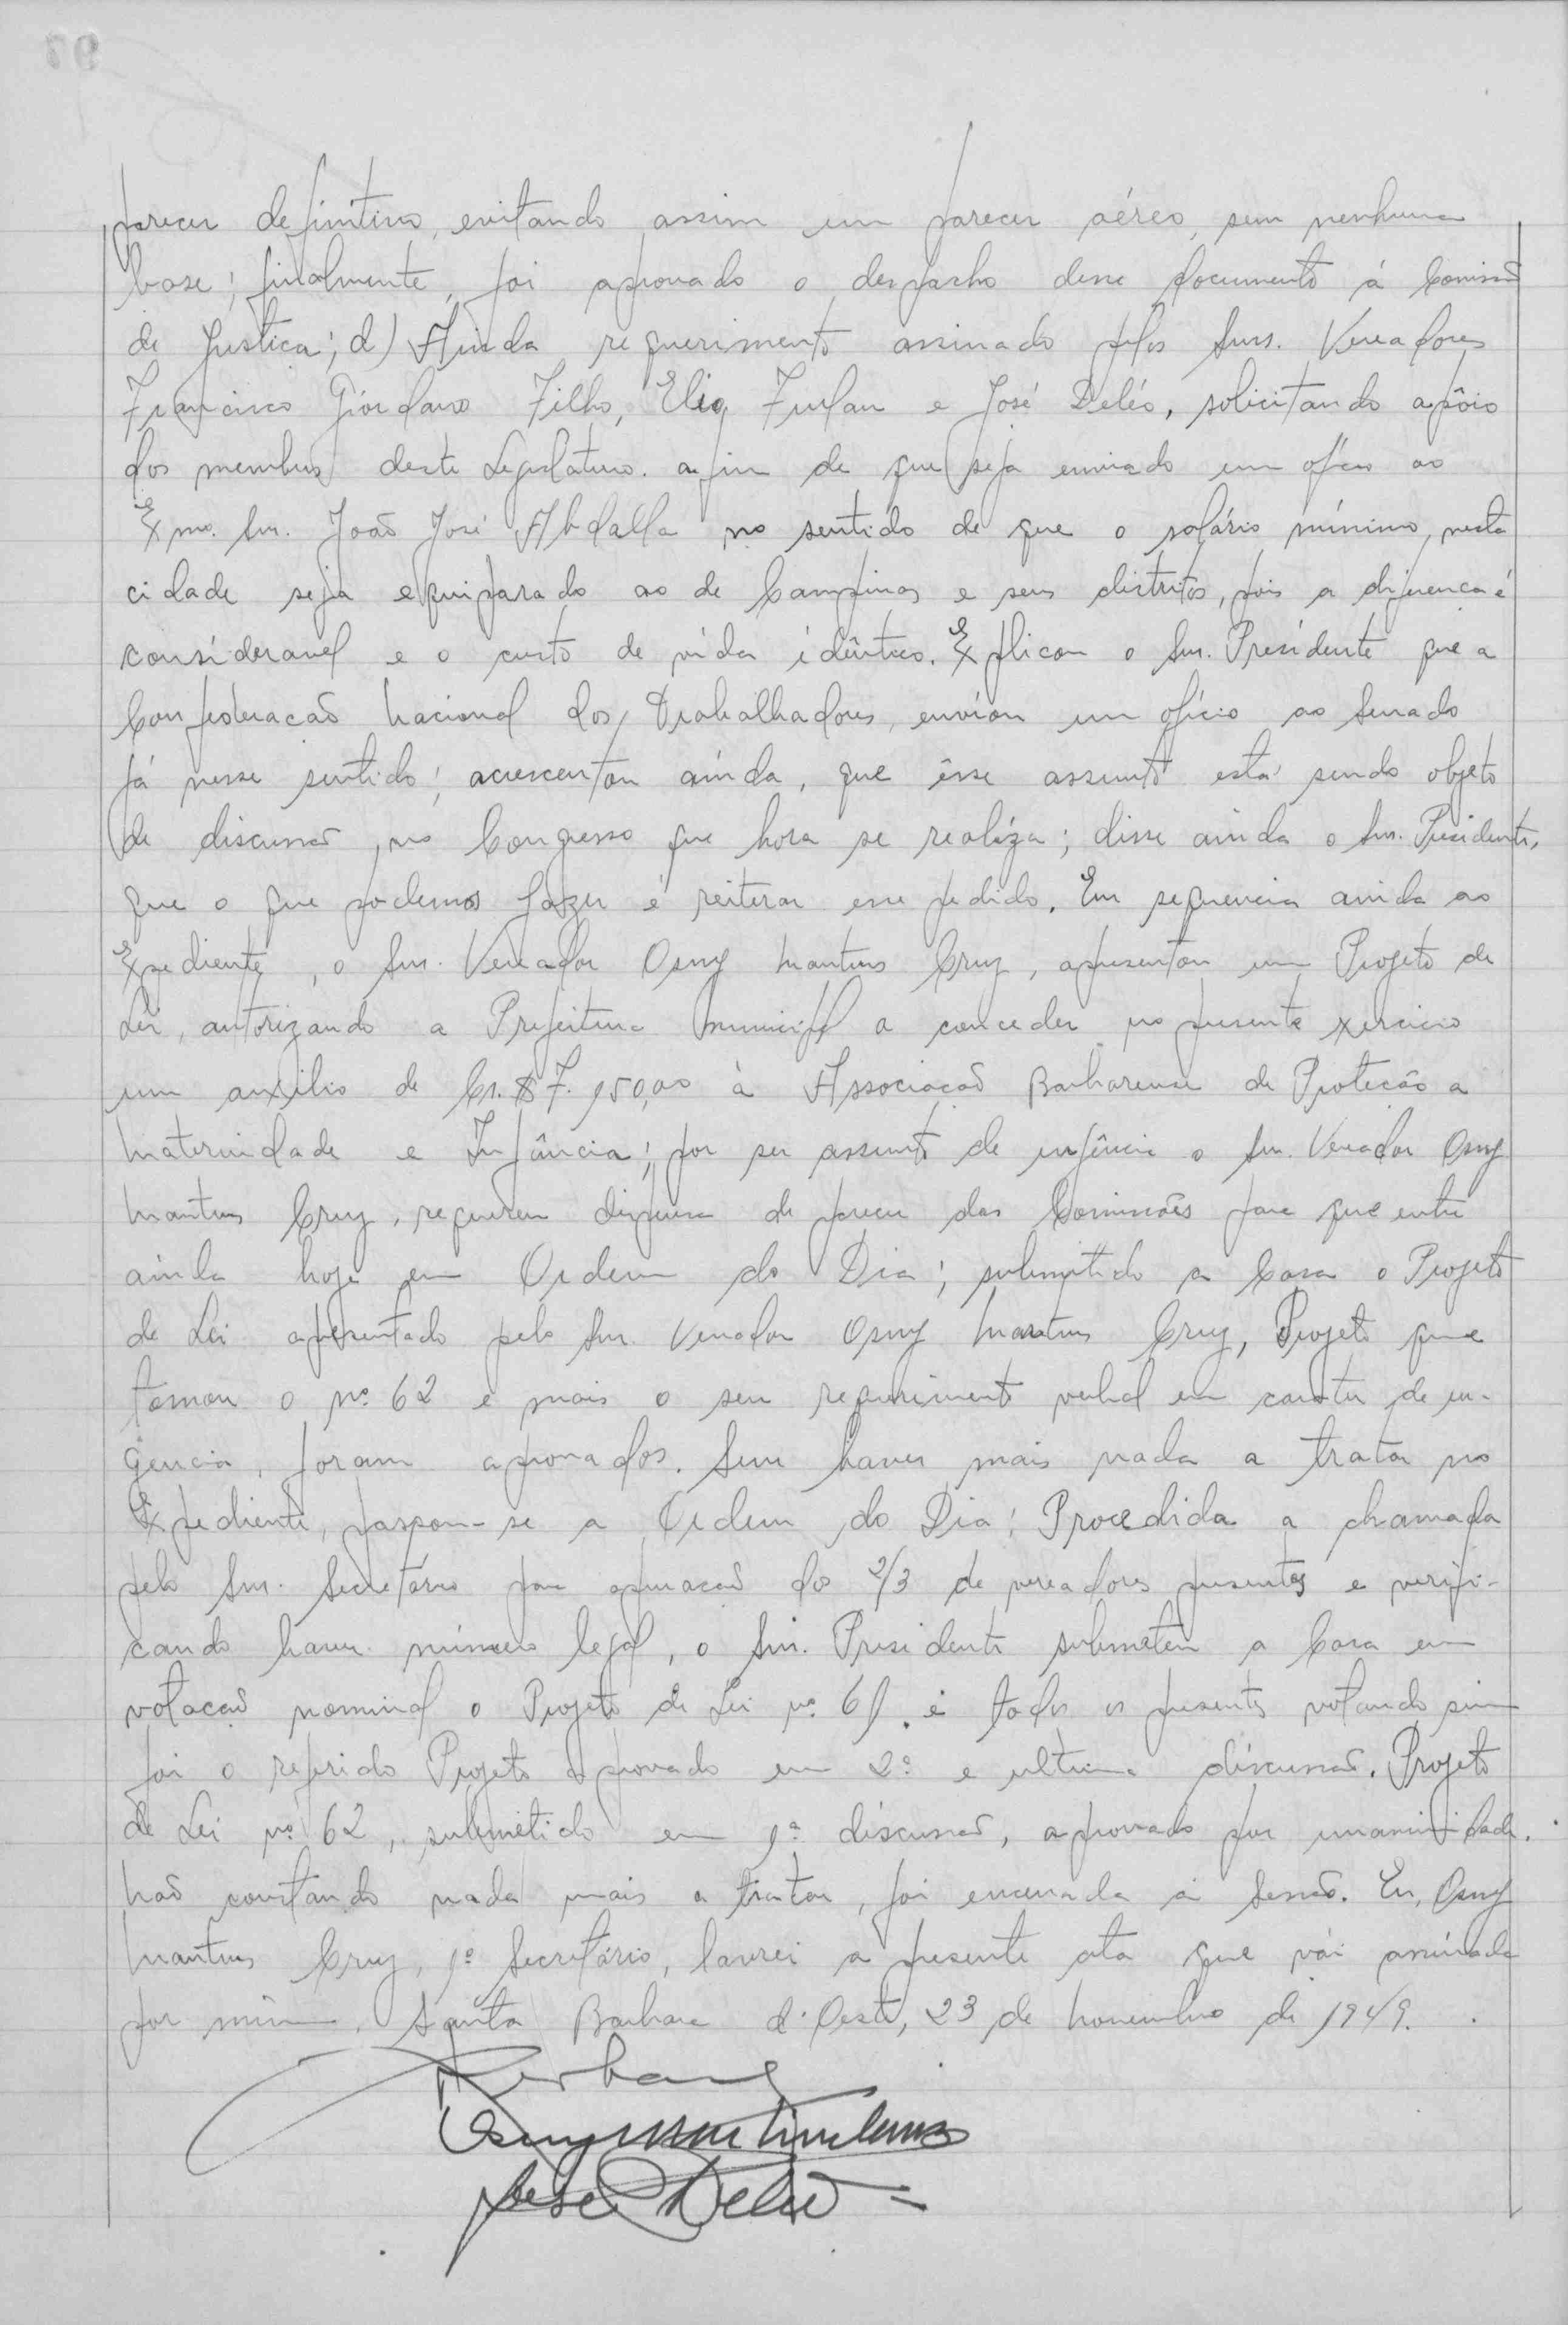 parecer definitivo, evitando assim um parecer aéreo, sem nenhuma
base; finalmente, foi aprovado o despacho desse documento á Comissão
de Justica; d) Ainda requerimento assinado pelos Snrs. Vereadores
Francisco Giordano Filho, Elio Furlan e José Deléo, solicitando apôio
dos membros deste Legislativo. afim de que seja enviado um ofício ao
Exmo. Snr. João José Abdalla no sentido de que o salário mínimo, nesta
cidade seja equiparado ao de Campinas e seus distritos, pois a diferenca é
consideravel e o custo de vida idêntico. Explicou o Snr. Presidente que a
Confederacão Nacional dos Trabalhadores, enviou um ofício ao Senado
já nesse sentido; acrescentou ainda, que êsse assunto está sendo objeto
de discussão, no Congresso que hora se realiza; disse ainda o Snr. Presidente,
que o que podemos fazer é reiterar esse pedido. Em sequencia ainda ao
Expediente, o Snr. Vereador Osny Martins Cruz, apresentou um Projeto de
Lei, autorizando a Prefeitura Municipal a conceder no presente xercicio
um auxilio de Cr.$ 7.150,00 à Associacão Barbarense de Protecão a
Maternidade e Infância; por ser assunto de urgência o Snr. Vereador Osny
Martins Cruz, requereu dispensa de parecer das Comissões para que entre
ainda hoje em Ordem do Dia; submetido a Casa o Projeto
de Lei apresentado pelo Snr. Vereador Osny Martins Cruz, Projeto que
tomou o nº 62 e mais o seu requerimento verbal em carater de ur-
gencia, foram aprovados. Sem haver mais nada a tratar no
Expediente, passou-se a Ordem do Dia: Procedida a chamada
pelo Snr. Secretário para apuracão dos 2/3 de vereadores presentes e verifi-
cando haver número legal, o Snr. Presidente submeteu a Casa em
votacão nominal o Projeto de Lei nº 61. e todos os presentes votando sim
foi o referido Projeto aprovado em 2ª e ultima discussão. Projeto
de Lei nº 62, submetido em 1ª discussão, aprovado por unanimidade.
Não constando nada mais a tratar, foi encerrada a Sessão. Eu, Osny
Martins Cruz, 1º Secretário, lavrei a presente ata que vái assinada
por mim. Santa Barbara d'Oeste, 23 de Novembro de 1949.
Osny Martins Cruz
José Deléo